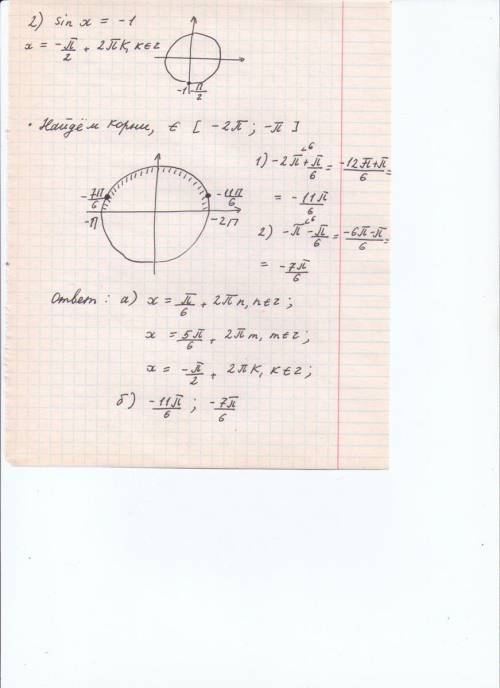 2) sin x = -1
x = -π/2 + 2πk, k∈z
-1 -π/2
• Найдём корни, ∈ [ -2π ; -π ]
1) -2π + π/6 = (-12π+π)/6 =
= -11π/6
-7π/6 -11π/6
-π -2π
2) -π - π/6 = (-6π-π)/6 =
= -7π/6
Ответ: а) x = π/6 + 2πn, n∈z;
x = 5π/6 + 2πm, m∈z;
x = -π/2 + 2πk, k∈z;
б) -11π/6 ; -7π/6